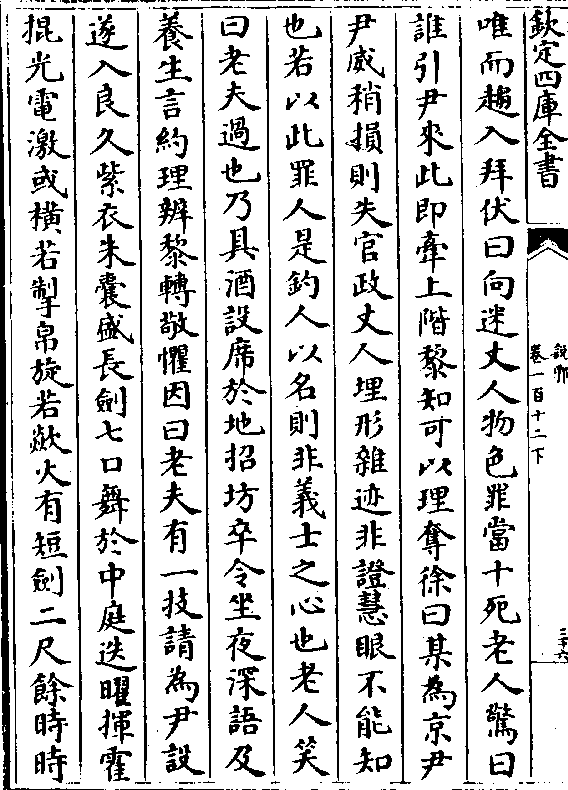 欽定四庫全書
說郛
卷一百十二下
三十六
唯而趨入拜伏曰向迷丈人物色罪當十死老人驚曰
誰引尹來此即牽上階黎知可以理奪徐曰某為京尹
尹威稍損則失官政丈人埋形雜迹非證慧眼不能知
也若以此罪人是釣人以名則非義士之心也老人笑
曰老夫過也乃具酒設席於地招坊卒令坐夜深語及
養生言約理辨黎轉敬懼因曰老夫有一技請為尹設
遂入良久紫衣朱囊盛長劍七口舞於中庭迭曜揮霍
掍光電激或橫若掣帛旋若歘火有短劍二尺餘時時